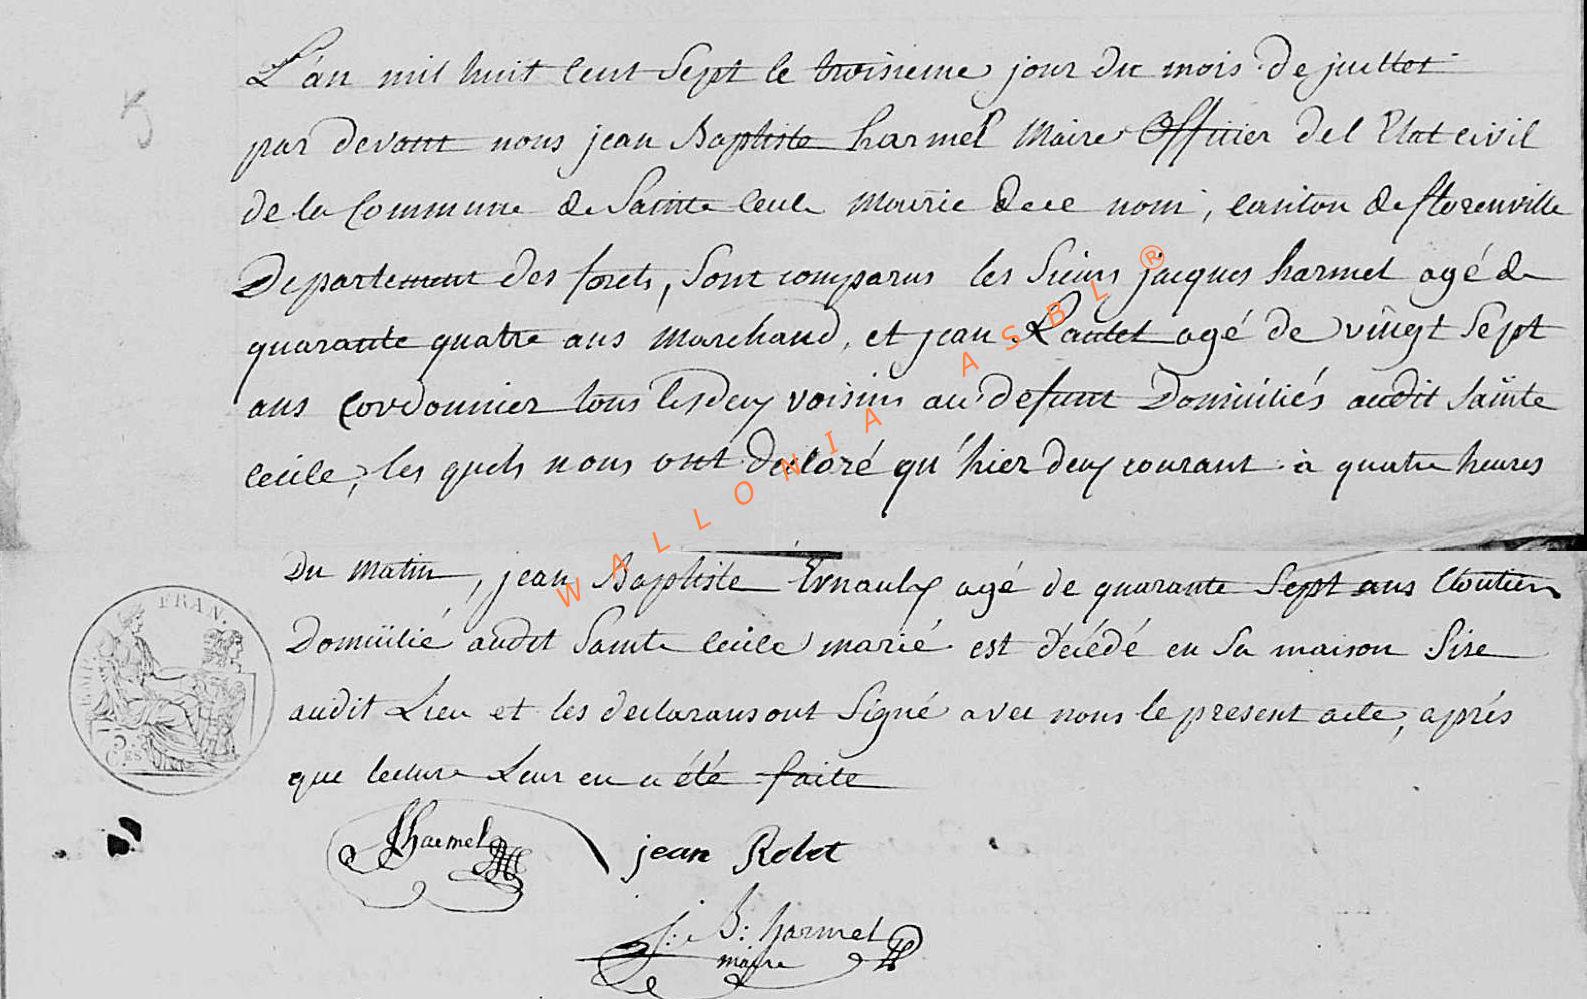 L'an mil huit cent sept le troisieme jour du mois de juillet
par devant nous jean Baptiste harmel Maire Officier del Etat civil
de la Commune de Sainte Cecile Mairie de ce nom, canton de florenville
Departement des forets, sont comparus les Sieurs jacques harmel agé de
quarante quatre ans Marchand, et jean agé de vingt Sept
ans Cordonnier tous les deux voisins au defunt Domiciliés audit Sainte
Cecile, les quels nous ont declaré qu'hier deux courant à quatre heures
Du Matin, jean Baptiste Ernaulx agé de quarante Sept ans Cloutier
Domicilié audit Sainte Cecile marié est décédé en Sa maison Sise
audit Lieu et les declarans ont Signé avec nous le present acte, aprés
que lecture Leur en a été faite
FRAN.
5
C.ES
JHarmel
jean Robet
J: B: harmel
maire
WALLONIA ASBL ®